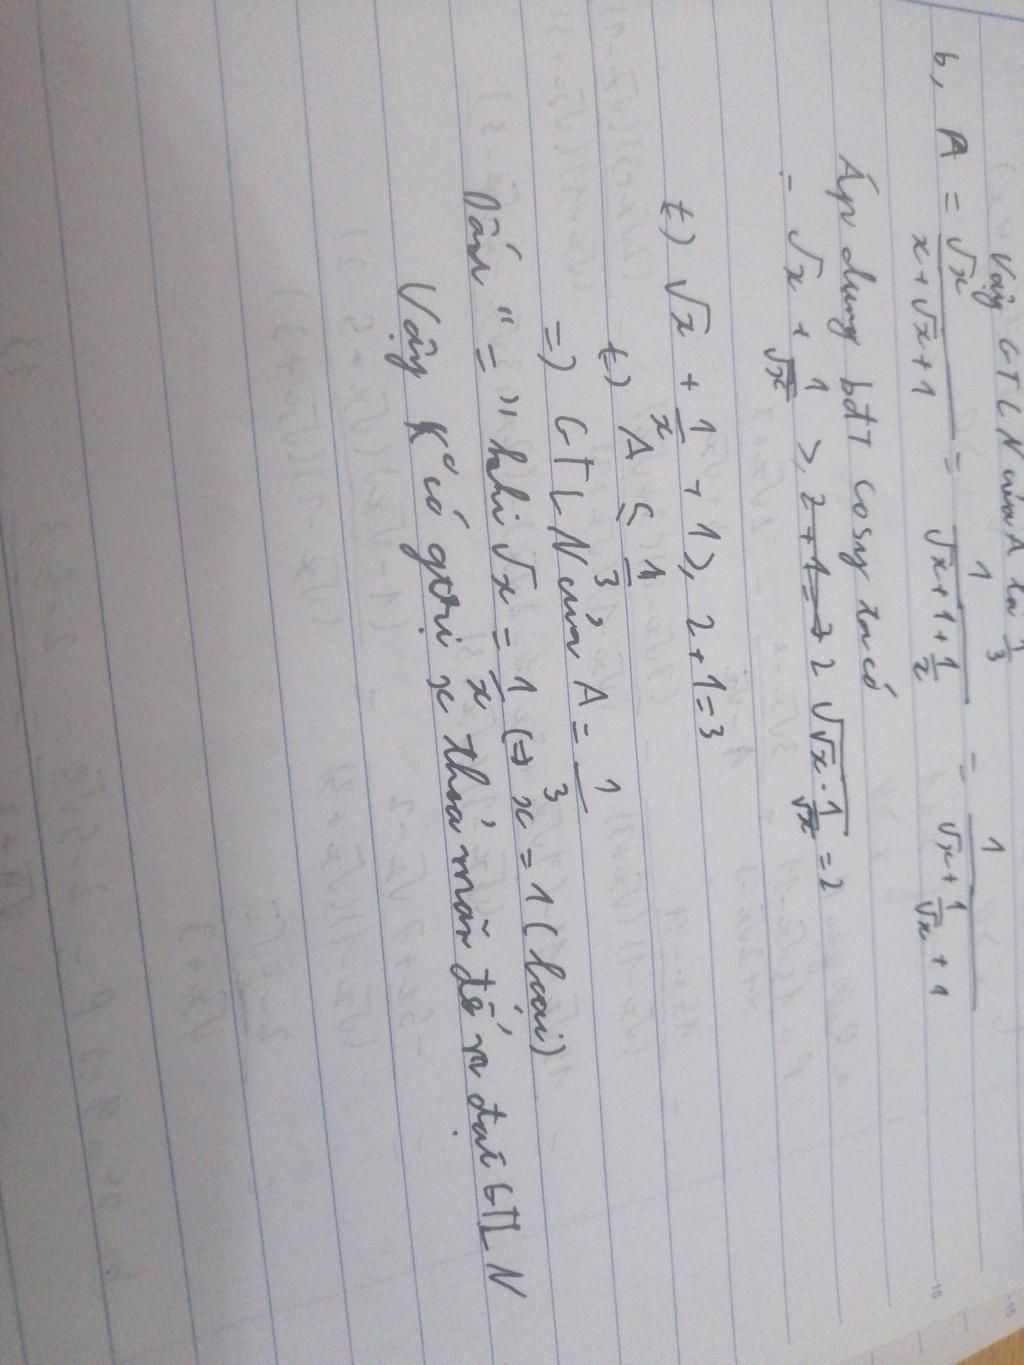 Vậy GTLN của A là 1/3
b, A = √x/(x+√x+1) = 1/(√x+1+1/x) = 1/(√x+1/√x+1)
Áp dụng bđT cosy ta có
- √x + 1/√x >, 2+1=3 2√(√x·1/√x) = 2
t) √x + 1/x + 1 >, 2+1=3
t) A ≤ 1/3
=) GTLN của A = 1/3
Dấu "=" khi √x = 1/x (=) x = 1 (loại)
Vậy K° có gtrị x thoả mãn để đạt GTLN